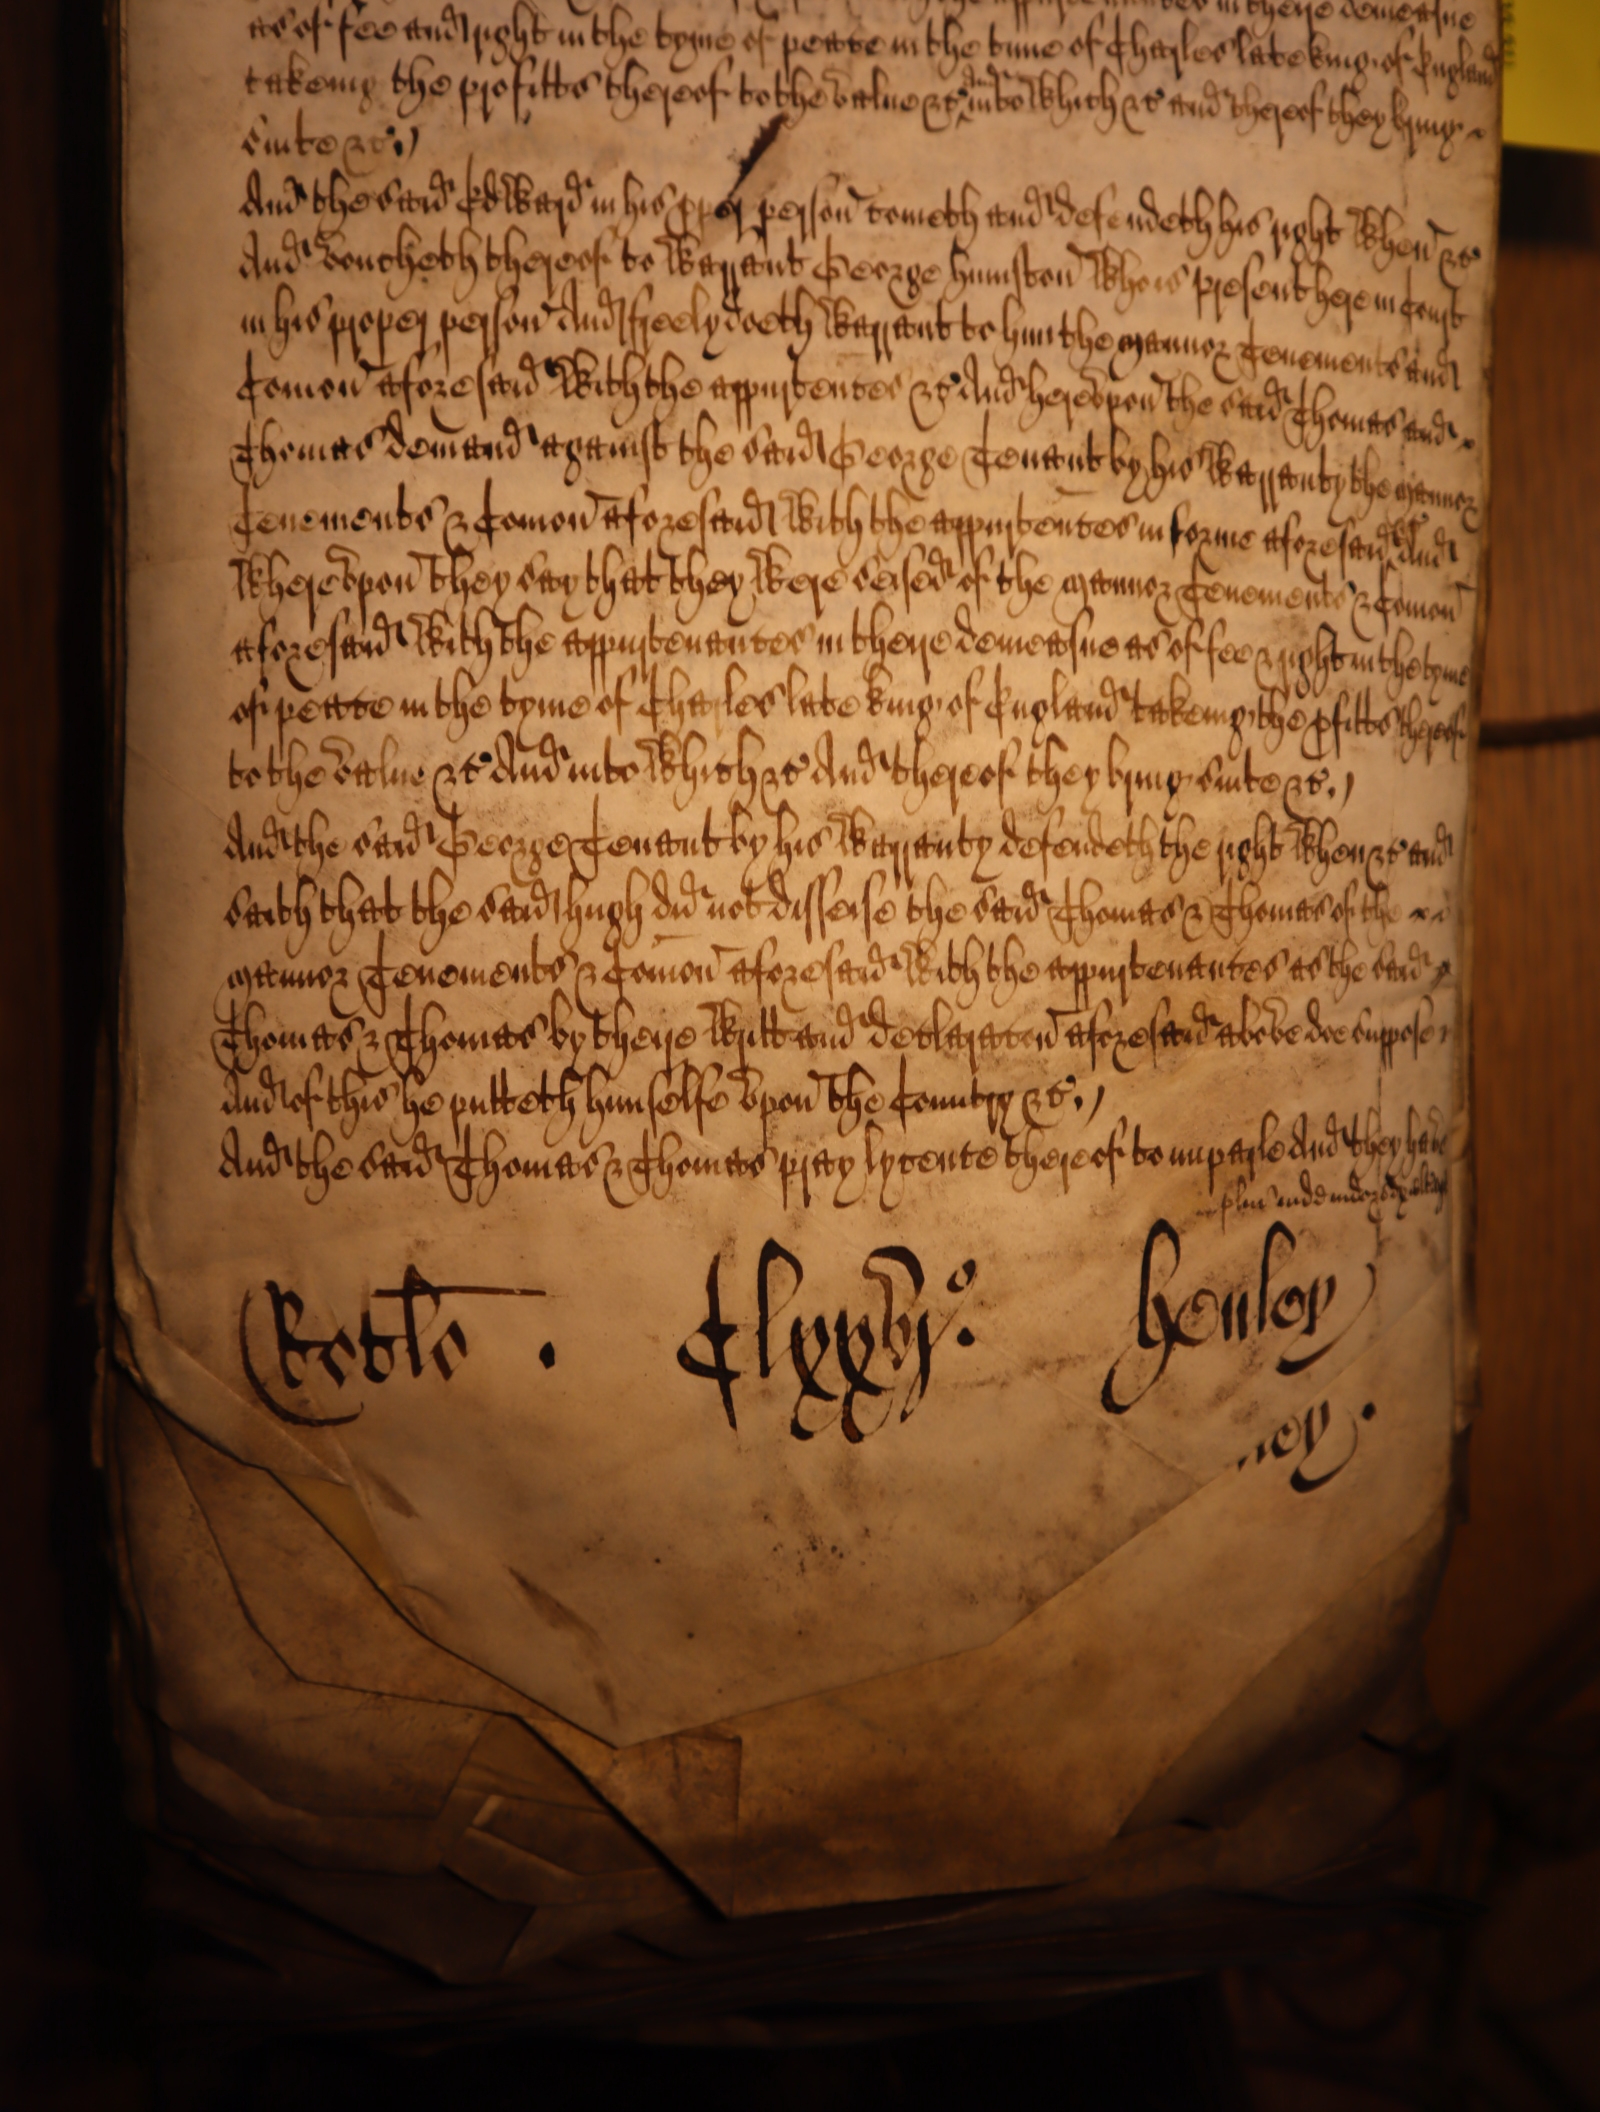 the appurtenances in theire demeasne
as of fee and right in the tyme of peace in the time of Charles late king of England
takeing the profitts thereof to the value &c And into which &c and thereof they bring
suite &c
And the said Edward in his pper person cometh and defendeth his right when &c
And voucheth thereof to warrant George Humston who is present here in Court
in his proper person And freely doeth warrant to him the mannor Tenements and
Comon aforesaid with the appurtences &c And hereupon the said Thomas and
Thomas demand against the said George Tenant by his warranty the mannor
Tenements & Comon aforesaid with the appurtences in forme aforesaid &c And
whereupon they say that they were seised of the mannor Tenements & Comon
aforesaid with the appurtenances in theire demeasne as of fee & right in the tyme
of peace in the tyme of Charles late king of England takeing the pfitts thereof
to the value &c And into which &c And thereof they bring suite &c
And the said George Tenant by his warranty defendeth the right when &c and
saith that the said Hugh did not disseise the said Thomas & Thomas of the
mannor Tenements & Comon aforesaid with the appurtenances as the said
Thomas & Thomas by theire writt and declaracon aforesaid above doe suppose
And of this he putteth himselfe upon the Country &c
And the said Thomas & Thomas pray lycence thereof to imparle And they have
plus inde
Ro Clxxvjo Henley
ley